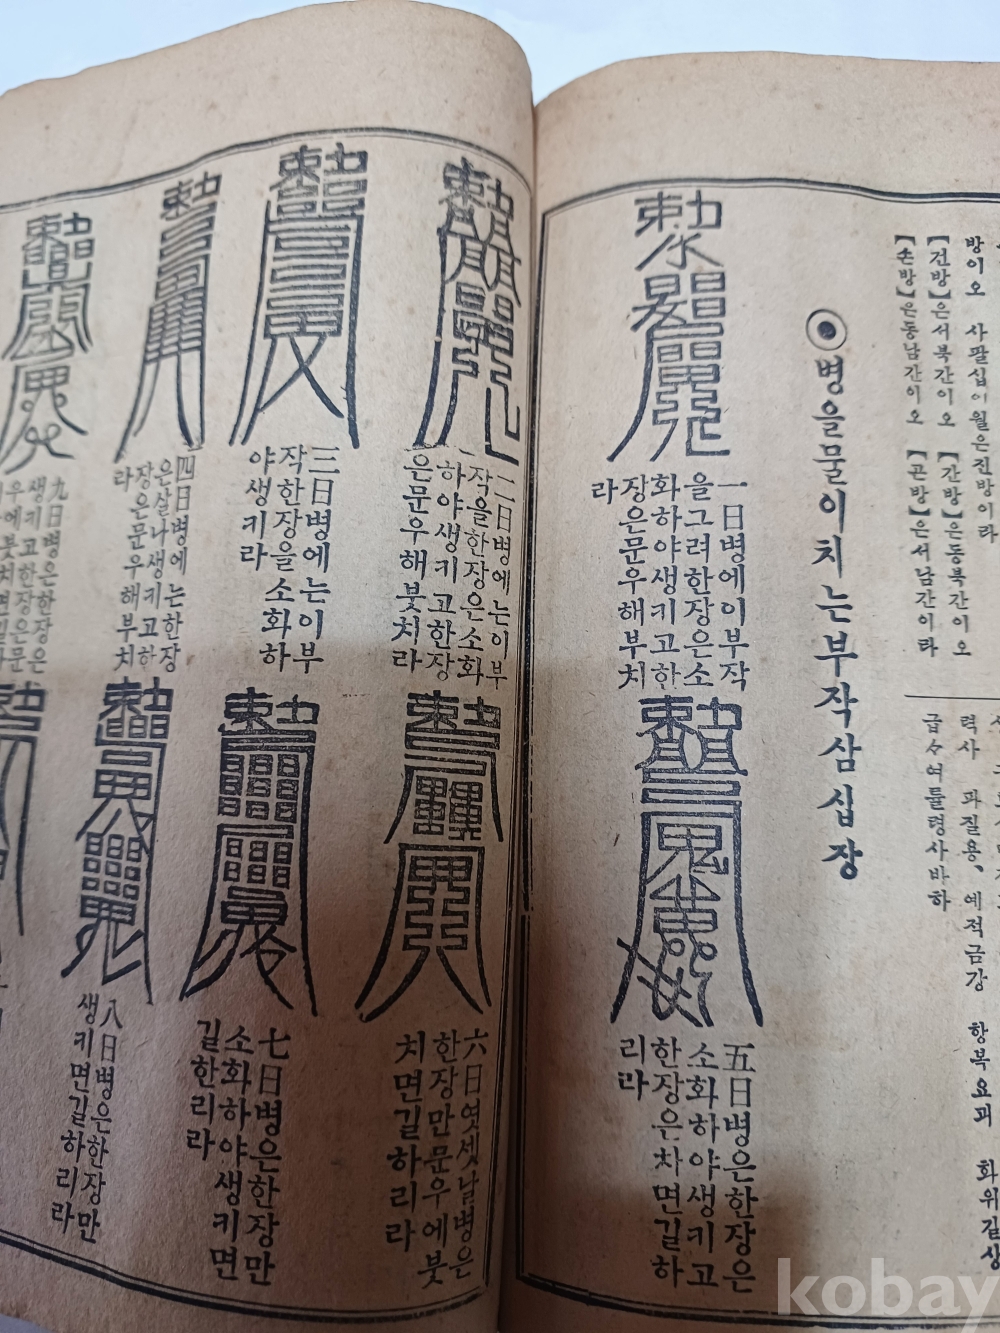 방이오 사팔십이월은진방이라
【건방】은서북간이오 【간방】은동북간이오
【손방】은동남간이오 【곤방】은서남간이라
력사 파질용、예적금강 항복요괴 화위길상
급々여률령사바하
병을물이치는부작삼십장
一日병에이부작
을그려한장은소
화하야생키고한
장은문우해부치
라
五日병은한장은
소화하야생키고
한장은차면길하
리라
二日병에는이부
작을한장은소화
하야생키고한장
은문우해붓치라
三日병에는이부
작한장을소화하
야생키라
四日병에는한장
은살나생키고한
장은문우해부치
라
九日병은한장은
생키고한장은문
六日엿셋날병은
한장만문우에붓
치면길하리라
七日병은한장만
소화하야생키면
길한리라
八日병은한장만
생키면길하리라
kobay